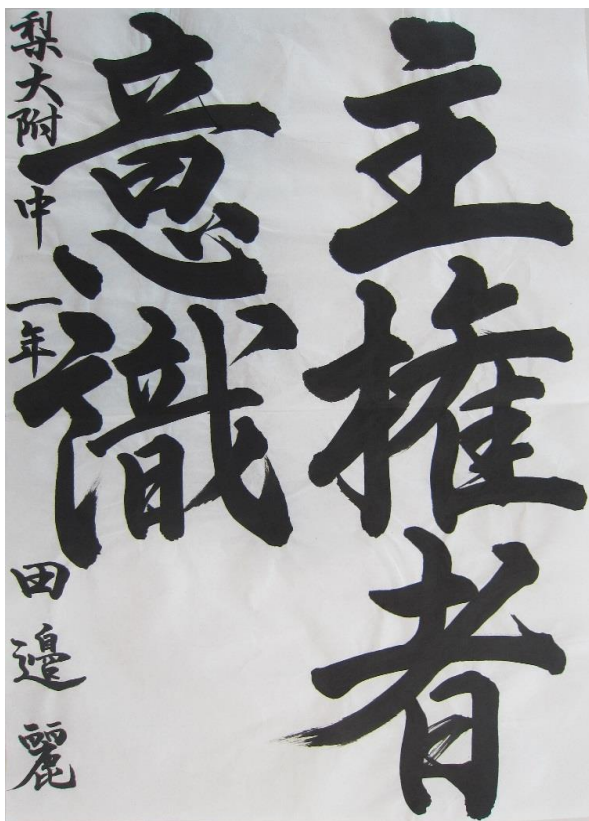 主権者
意識
梨大附中 一年 田邉 麗